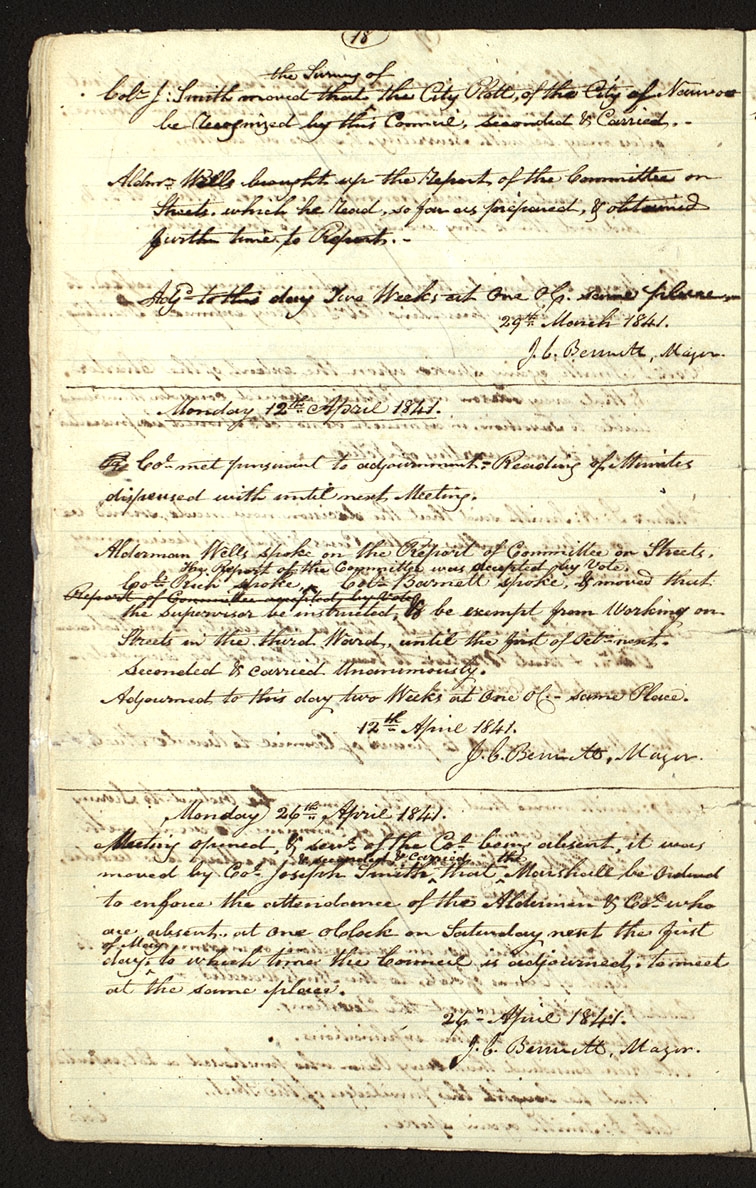 18
the Survey of
Colr J: Smith moved that the City Plott, of the City of Nauvoo
be Recognized by this Council, seconded & Carried.-
Aldmn Wells brought up the Report, of the Committee on
Streets, which he Read, so far as prepared, & obtained
further time to Report.-
Adjd to this day Two Weeks at One OC. same place
29th March 1841.
J. C. Bennett, Mayor.
Monday 12th April 1841.
Col met pursuant to adjournment.- Reading of Minutes
dispensed with until next Meeting.
Alderman Wells spoke on the Report of Committee on Streets.
The Report of the Committee was accepted by Vote.
Colr Rich spoke, Colr Barnett spoke, & moved that
Report of Committee accepted by Vote
the Supervisor be instructed, to be exempt from Working on
Streets in the third Ward, until the first of Octr next.-
Seconded & Carried Unanimously.
Adjourned to this day two Weeks at One OC- same Place.
12th April 1841.
J. C. Bennett, Mayor.
Monday 26th April 1841.
Meeting opened, & sevl of the Col being absent, it was
& seconded & Carried the
moved by Cor Joseph Smith, that Marshall be Ordered
to enforce the attendance of the Aldermen & Cors who
are absent, at One oClock on Saturday next the first
of May
day, to which time the Council is adjourned, to meet
at the same place.
26th April 1841.
J. C. Bennett, Mayor.